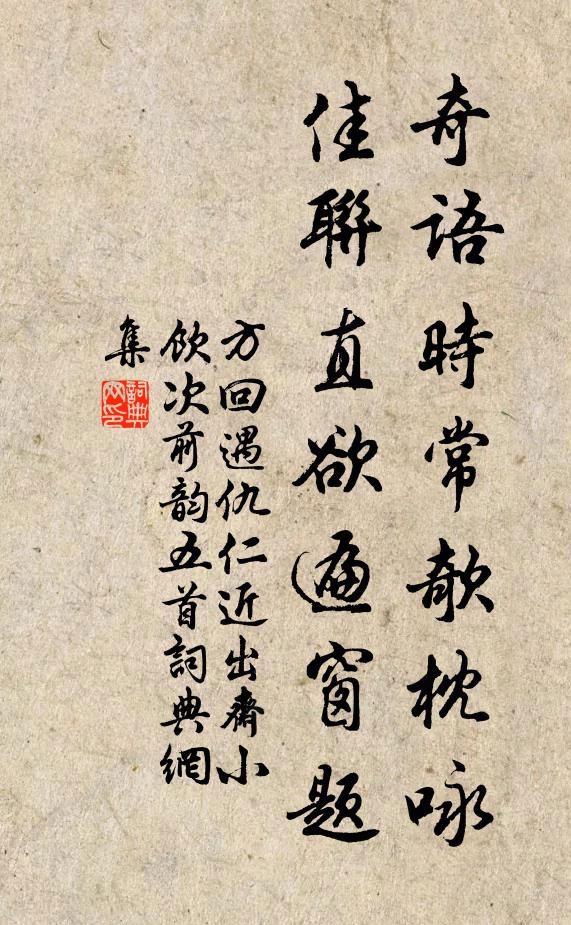 奇語時常欹枕咏
佳聯直欲遍窗題
方回遇仇仁近出齋小
飲次前韵五首詞典網
集
詞典网印